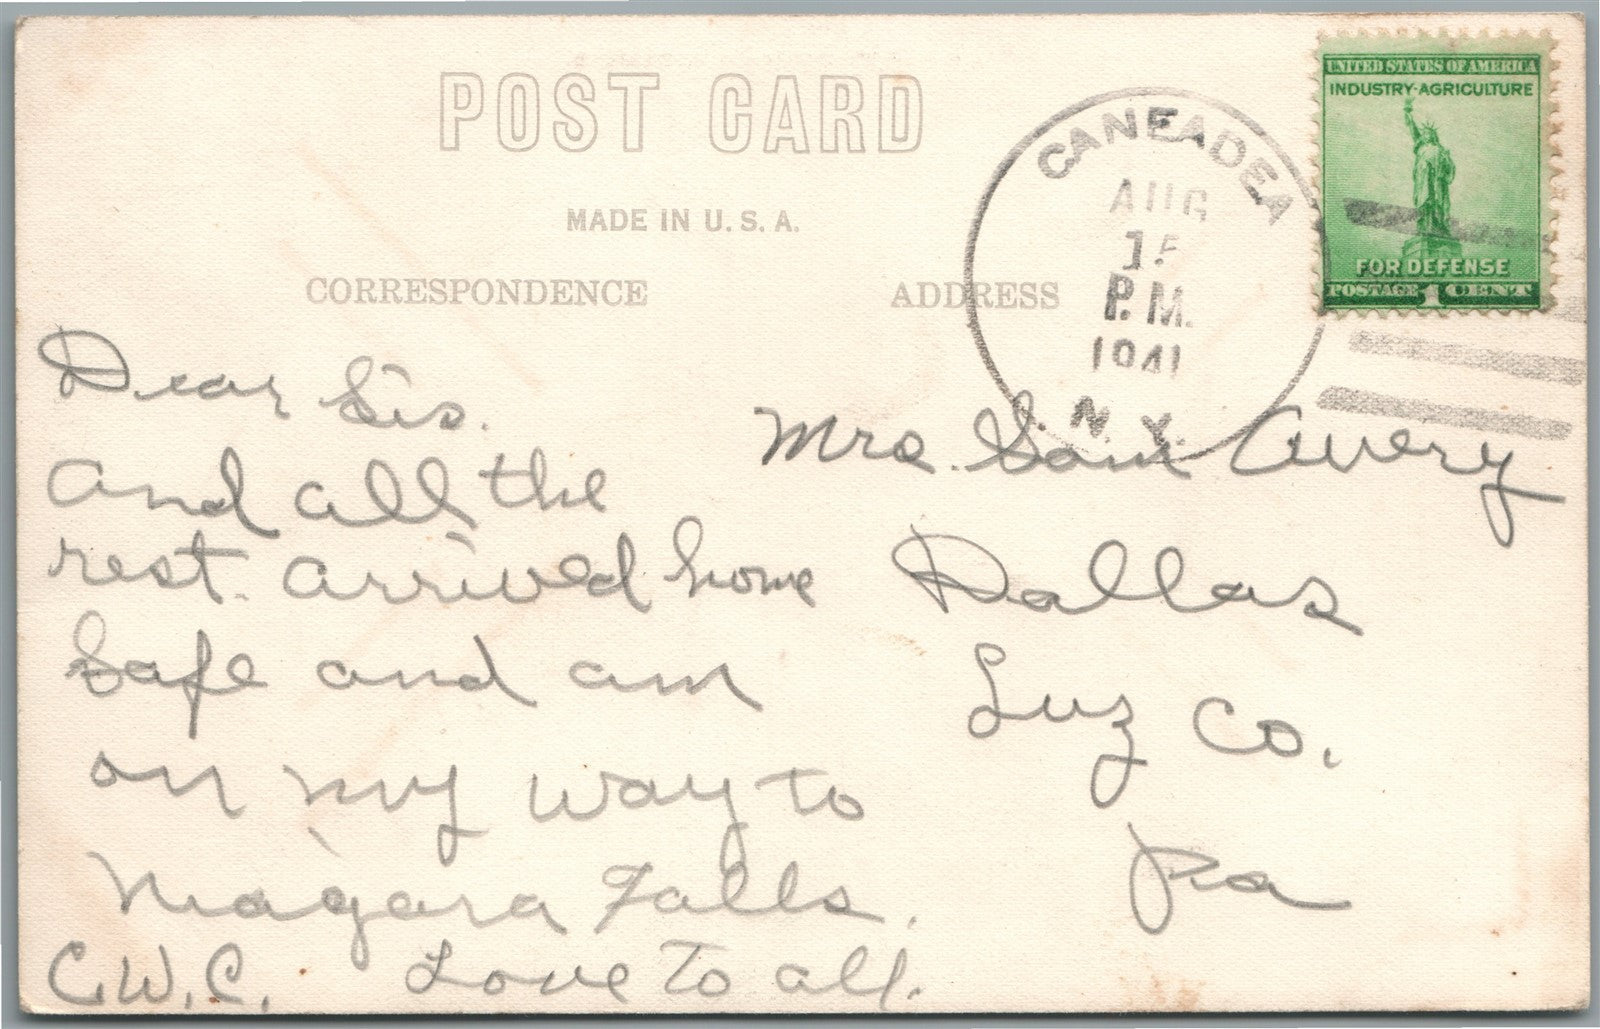 POST CARD
MADE IN U.S.A.
CORRESPONDENCE
ADDRESS
CANEADEA
AUG
15
P.M.
1941
N.Y.
UNITED STATES OF AMERICA
INDUSTRY-AGRICULTURE
FOR DEFENSE
POSTAGE 1 CENT
Dear Sis.
And all the
rest. arrived home
Safe and am
on my way to
Niagara Falls.
C.W.C. Love To all.
Mrs. Sam Avery
Dallas
Luz Co.
Pa